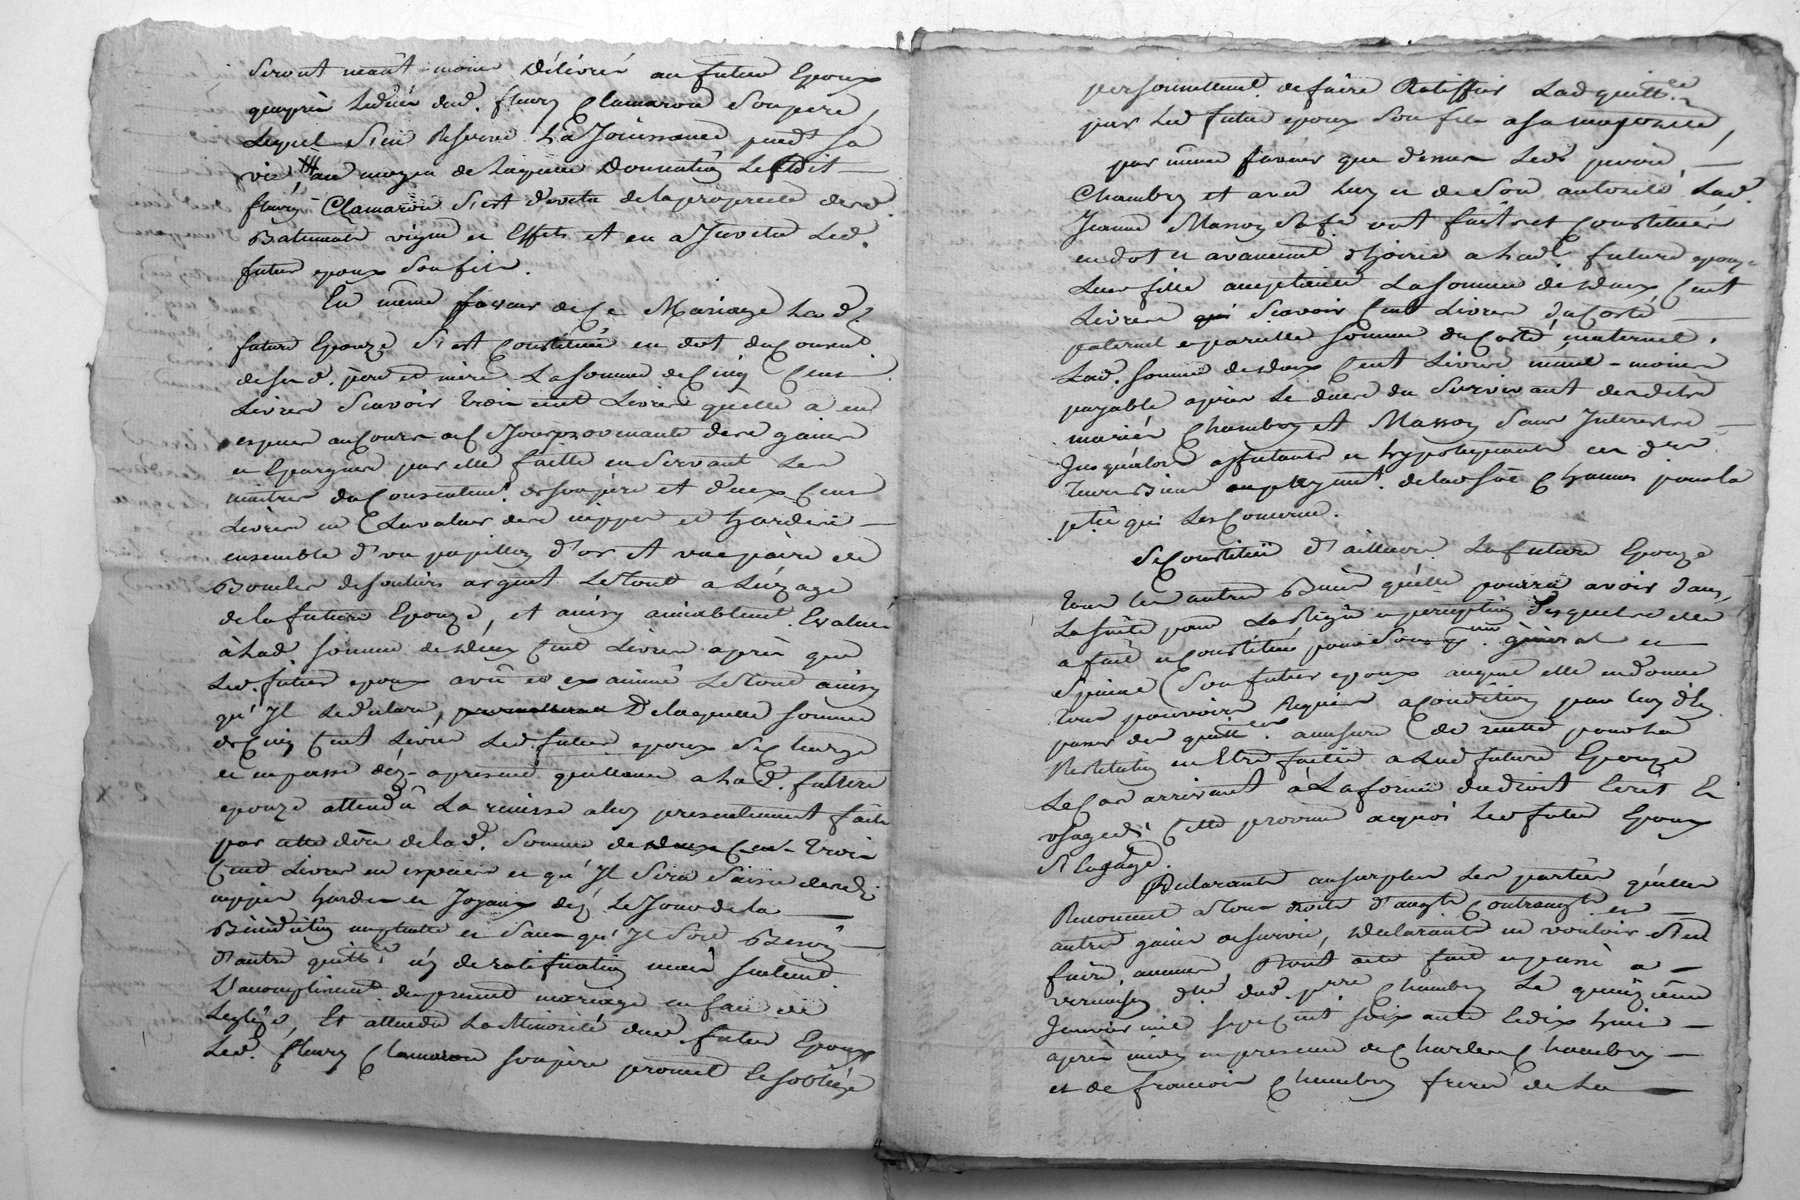 seront neant-moins délivrés au futur Epoux
qu'après le décès dud. fleury Clamaron son père,
Lequel s'en Reserve La Jouissance pendt sa
vie, au moyen de laquelle Donnation Le sdit
fleury Clamaron s'est devetu de la proprieté desd.
Batiments vigne et Effets et en a Jnvetu Led.
futur epoux son fils.
En même faveur de Ce Mariage La de
future Epouze s'est Constituée en dot du Consent.
de sesd. père et mère La somme de Cinq Cens
Livres Scavoir trois cent Livres qu'elle a en
especes au cours de ce Jour provenante de ses gains
et Epargnes par elle faitte en servant Les
maitres du Consentemt. de son père et deux Cens
Livres en La valeur de ses nippes et hardes
ensemble d'un papillon d'or et une paire de
Boucles de souliers argent Le tout a L'uzage
de la future Epouze, et ainsy amiablemt. Evalué
à lad somme de deux Cent Livres après que
Led. futur epoux a vû et examiné Le tout ainsy
qu'Jl Le declare, De laquelle somme
de Cinq Cent Livres Led. futur epoux se Charge
et en passe déz-apresent quittance a lad. future
epouze attendû La remisse a luy presentement faite
par cette dère de lad. somme de trois
Cent Livres en especes et qu'Jl sera saisie desd.
nippes hardes et Joyaux déz Le Jour de la
Bénédiction nuptialle et sans qu'Jl soit Besoin
d'autre quittce. n'y de ratiffication mais seulemt.
L'accomplissemt. du present mariage en face de
L'eglise, Et attendu La Minorité dud. futur Epoux
Led. fleury Clamaron son père promet Et s'oblige
personnellemt. de faire Ratiffier Lad quittce.
par Led futur epoux son fils a sa majorité,
par même faveur que dessus Led. pierre
Chambry et avec luy et de son autorité Lad.
Jeanne Masson sa fe. ont fait et Constitué
en dot et avancemt d'hoirie a lad. future epouze
Leur fille acceptante La somme de deux Cent
Livres Scavoir Cent Livres du Costé
paternel et pareille somme du Costé maternel.
Lad. somme de deux Cent Livres neant-moins
payable après Le décès du survivant desdits
mariés Chambry et Masson sans Jnterests
Jusqu'alors affectants et hypotequants
leurs Biens au payemt. de lad soê Chacun pour la
ptie qui Les Concerne.
Se Constitüe d'ailleurs La future Epouze
tous Les autres Biens qu'elle pourra avoir dans
La suite pour La Régie et perception desquels elle
a fait et Constitué pour son pr. général et
spécial son futur epoux auquel elle en donne
tous pouvoirs Requis a condition par luy d'en
passer des quittces. a mesure de recette pour la
Restitution en Etre faitte a Lad future Epouze
Le Cas arrivant à La forme du droit Ecrit Et
usage de Cette province a quoi Led futur Epoux
s'Engage.
Déclarants au surplus Les parties qu'elles
Renoncent a tous droits d'augt. Contraugt. et
autres gains de survie, declarants ne vouloir s'en
faire aucuns, Dont acte fait et passé a
vernaison du dud. pierre Chambry Le quinzième
Janvier mil sept Cent soixante Et dix huit
après midy en presence de Charles Chambry
et de francois Chambry freres de La